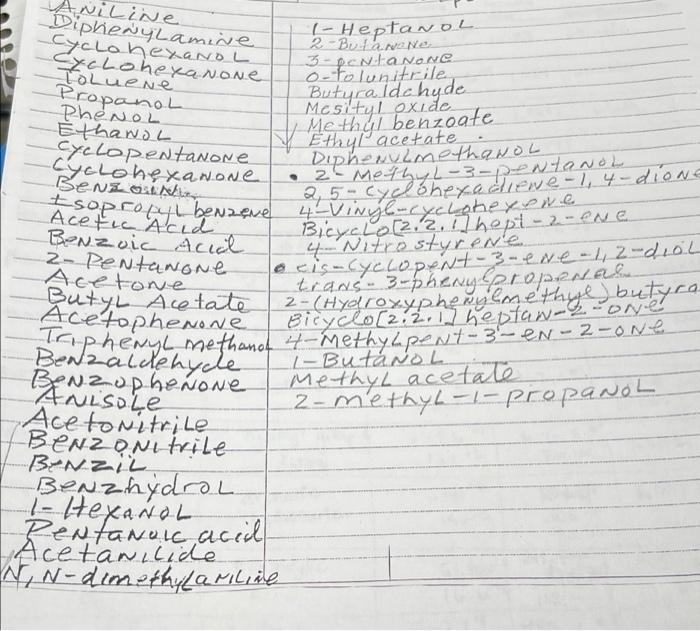 ANiLiNe
DiphenyLamine
CycLohexANOL
CycLohexaNone
ToLueNe
PropanoL
PheNOL
EthanoL
CycLopentaNONe
CycLohexaNone
IsopropyL benzene
Acetic Acid
Benzoic Acid
2-PentaNONe
Acetone
ButyL Acetate
AcetopheNONe
TriphenyL methanol
Benzaldehyde
BeNzophenone
ANisoLe
AcetoNitriLe
BENZONitriLe
BENZiL
BenzhydroL
1-HexaNOL
PentaNoic acid
AcetaNiLide
N,N-dimethyLaNiLiNe
1-HeptaNOL
2-ButaNoNe
3-pentaNONe
o-toLunitrile
Butyraldehyde
MesityL oxide
Methyl benzoate
Ethyl acetate.
DiphenyLmethaNOL
• 2-MethyL-3-pentaNOL
2,5-cycLohexadieNe-1,4-dione
4-Vinyl-cycLohexeNe
BicycLo[2.2.1]hept-2-eNe
4-NitrostyreNe
• cis-CycLopeNt-3-eNe-1,2-dioL
trans-3-phenyLpropeNaL
2-(Hydroxyphenylmethyl)butyra
BicycLo[2.2.1]heptaN-2-oNe
4-MethyLpeNt-3-eN-2-oNe
1-ButaNOL
MethyL acetate
2-methyL-1-propaNoL